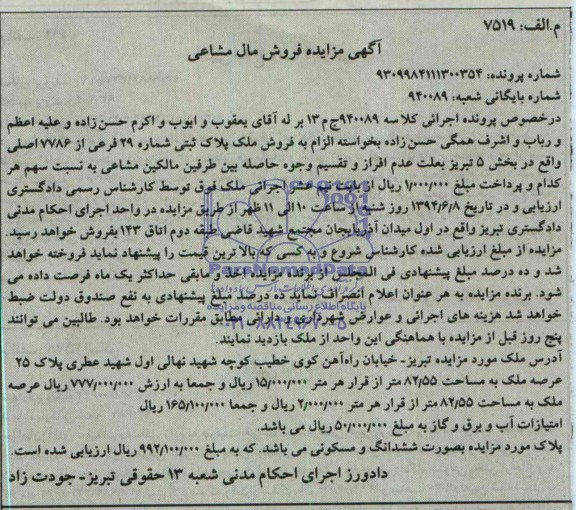 م.الف: ۷۵۱۹
آگهی مزایده فروش مال مشاعی
شماره پرونده: ۹۳۰۹۹۸۴۱۱۱۳۰۰۳۵۴
شماره بایگانی شعبه: ۹۴۰۰۸۹
درخصوص پرونده اجرائی کلاسه ۹۴۰۰۸۹ج‌م۱۳ بر له آقای یعقوب و ایوب و اکرم حسن‌زاده و علیه اعظم
و رباب و اشرف همگی حسن‌زاده بخواسته الزام به فروش ملک پلاک ثبتی شماره ۲۹ فرعی از ۷۷۸۶اصلی
واقع در بخش ۵ تبریز بعلت عدم افراز و تقسیم وجوه حاصله بین طرفین مالکین مشاعی به نسبت سهم هر
کدام و پرداخت مبلغ ۱/۰۰۰/۰۰۰ ریال از بابت نیم عشر اجرائی ملک فوق توسط کارشناس رسمی دادگستری
ارزیابی و در تاریخ ۱۳۹۴/۶/۸ روز شنبه از ساعت ۱۰ الی ۱۱ ظهر از طریق مزایده در واحد اجرای احکام مدنی
دادگستری تبریز واقع در اول میدان آذربایجان مجتمع شهید قاضی طبقه دوم اتاق ۱۴۳ بفروش خواهد رسید.
مزایده از مبلغ ارزیابی شده کارشناس شروع و به کسی که بالا ترین قیمت را پیشنهاد نماید فروخته خواهد
شد و ده درصد مبلغ پیشنهادی فی المجلس از برنده مزایده اخذ و مابقی حداکثر یک ماه فرصت داده می
شود. برنده مزایده به هر عنوان اعلام انصراف نماید ده درصد مبلغ پیشنهادی به نفع صندوق دولت ضبط
خواهد شد هزینه های اجرائی و عوارض شهرداری و دارائی مطابق مقررات خواهد بود. طالبین می توانند
پنج روز قبل از مزایده با هماهنگی این واحد از ملک بازدید نمایند.
آدرس ملک مورد مزایده تبریز- خیابان راه‌آهن کوی خطیب کوچه شهید نهالی اول شهید عطری پلاک ۲۵
عرصه ملک به مساحت ۸۲/۵۵ متر از قرار هر متر ۱۵/۰۰۰/۰۰۰ ریال و جمعا به ارزش ۷۷۷/۰۰۰/۰۰۰ ریال عرصه
ملک به مساحت ۸۲/۵۵ متر از قرار هر متر ۲/۰۰۰/۰۰۰ ریال و جمعا ۱۶۵/۱۰۰/۰۰۰ ریال
امتیازات آب و برق و گاز به مبلغ ۵۰/۰۰۰/۰۰۰ ریال می باشد.
پلاک مورد مزایده بصورت ششدانگ و مسکونی می باشد. که به مبلغ ۹۹۲/۱۰۰/۰۰۰ ریال ارزیابی شده است.
دادورز اجرای احکام مدنی شعبه ۱۳ حقوقی تبریز- جودت زاد
ParsNamadData
پایگاه اطلاع رسانی مناقصه و مزایده
۰۲۱-۸۸۳۴۹۶۷۰-۵